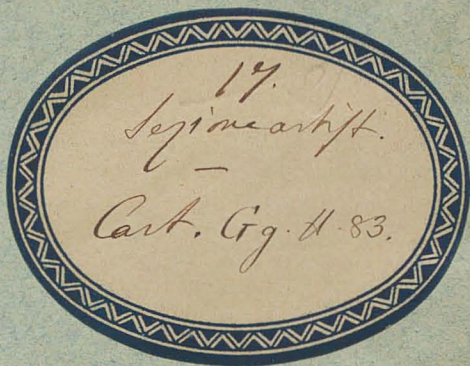 17.
Sezione artist.
Cart. Gg. II. 83.